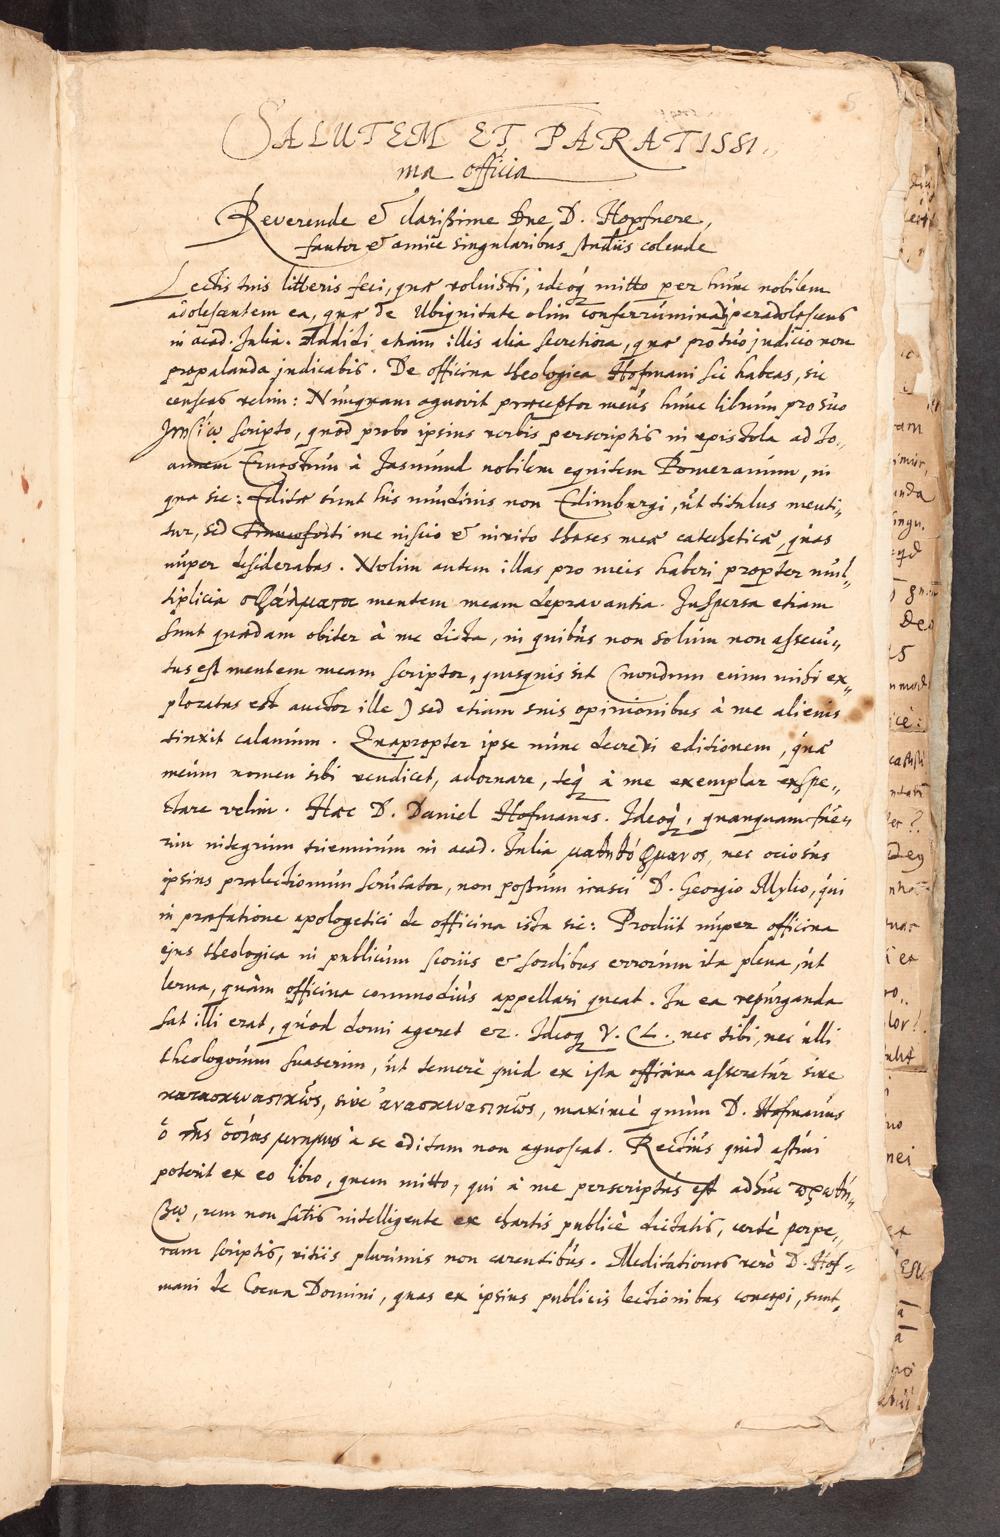 SALUTEM ET PARATISSI„
ma officia
Reverende & clarißime Dne D. Hopfnere,
fautor & amice singularibus studiis colende
Lectis tuis litteris feci, quæ voluisti, ideoq́ mitto per hunc nobilem
adolescentem ea, quæ de Ubiquitate olim conferrúminavi peradolescens
in acad. Iulia. Addidi etiam illis alia secretiora, quæ pro túo judicio non
propalanda judicabis. De officina theologica Hofmani sic habeas, sic
censeas velim: Núnquam agnovit præceptor meús húnc librúm pro súo
γνησίῳ scripto, quod probo ipsius verbis perscriptis in epistola ad Jo„
annem Ernestúm à Jasmúnd nobilem equitem Pomeranúm, in
qua sic: Editæ súnt his núndinis non Edimburgi, út titulus menti„
tur, sed francoforti me inscio & invito theses meæ catecheticæ, quas
núper desiderabas. Nolim autem illas pro meis haberi propter múl„
tiplicia σφάλματα mentem meam depravantia. Inspersa etiam
sunt quædam obiter à me dicta, in quibús non solúm non assecú„
tus est mentem meam scriptor, quisquis sit (nondum enim mihi ex„
ploratus est auctor ille) sed etiam suis opinionibus à me alienis
tinxit calamúm. Quapropter ipse núnc decrevi editionem, quæ
meúm nomen sibi vendicet, adornare, teq́ à me exemplar exspe„
ctare velim. Hæc D. Daniel Hofmanus. Ideoq́, quanquam fúe„
rim integrúm trienniúm in acad. Iulia μαθητόμενος, nec ociosús
ipsius prælectionúm scrutator, non poßúm irasci D. Georgio Mylio, qúi
in præfatione apologetici de officina ista sic: Prodiit núper officina
ejus theologica in publicúm scoriis & sordibus errorúm ita plena, út
lerna, quàm officina commodiús appellari queat. In ea repúrganda
sat illi erat, qúod domi ageret etc. Ideoq V. CL. nec tibi, nec úlli
theologorúm suaserim, út temerè quid ex ista officina asseretúr sive
κατασκευαστικῶς, sive ἀνασκευαστικῶς, maximè qúum D. Hofmanús
à se editam non agnoscat. Rectiús quid æstimi
poterit ex eo libro, quem mitto, qui à me perscriptús est adhúc πρωθή„
βῳ, rem non satis intelligente ex chartis publicè dictatis, certè perpe„
ram scriptis, vitiis plurimis non carentibús. Meditationes verò D. Hof„
mani de Coena Domini, quas ex ipsius publicis lectionibus concepi, sunt„